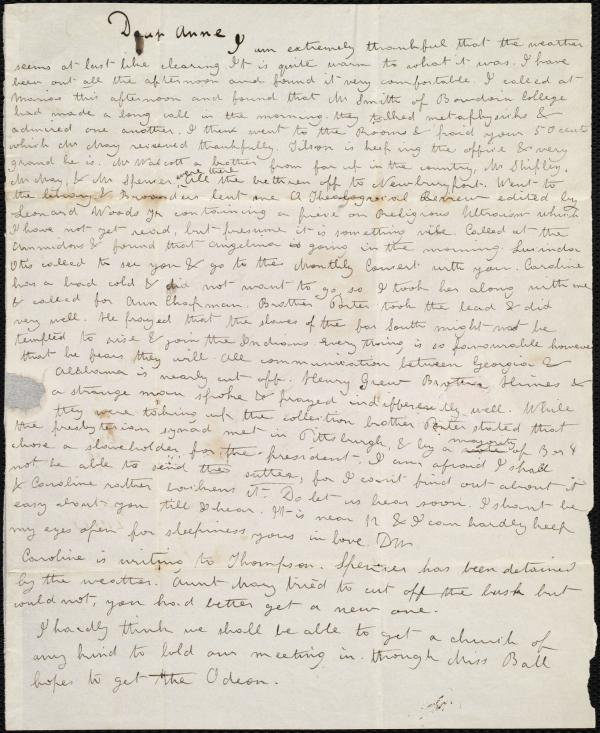 Dear Anne
I am extremely thankful that the weather
seems at last like clearing. It is quite warm to what it was. I have
been out all the afternoon and found it very comfortable. I called at
Marias this afternoon and found that Mr Smith of Bowdoin College
had made a long call in the morning. they talked metaphysicks &
admired one another. I then went to the Rooms & paid your 50 cents
which Mr May received thankfully. Tilson is keeping the office & very
grand he is. Mr Walcott a brother from far up in the country, Mr Shipley,
Mr May, & Mr Spencer were there All the brethren off to Newburyport. Went to
the library & Brounders lent me A Theological Review edited by
Leonard Woods Jr containing a piece on Religious Ultraism which
I have not yet read, but presume it is something vile. Called at the
Ammidons & found that Angelina is going in the morning. Lucinda
Otis called to see you & go to the Monthly Consert with you. Caroline
has a bad cold & did not want to go, so I took her along with me
& called for Ann Chapman. Brother Porter took the lead & did
very well. He prayed that the slaves of the far South might not be
tempted to rise & join the Indians every thing is so favourable however
that he fears they will. All communication between Georgia &
Alabama is nearly cut off. Henry Grew Brothers, Himes &
a strange man spoke & prayed indifferently well. While
they were taking up the collection brother Porter stated that
the presbyterian synod met in Pittsburgh, & by a majority of 3 or 4
chose a slaveholder for the president. I am afraid I shall
not be able to send the , for I can't find out about it
& Caroline rather it. Do let us hear soon. I shant be
easy about you till I hear. It is near 12 & I can hardly keep
my eyes open for sleepiness yours in love DW
Caroline is writing to Thompson. Spencer has been detained
by the weather. Aunt Mary tried to cut off the busk but
could not, you had better get a new one.
I hardly think we shall be able to get a church of
any kind to hold our meeting in. though Miss Ball
hopes to get the Odeon.